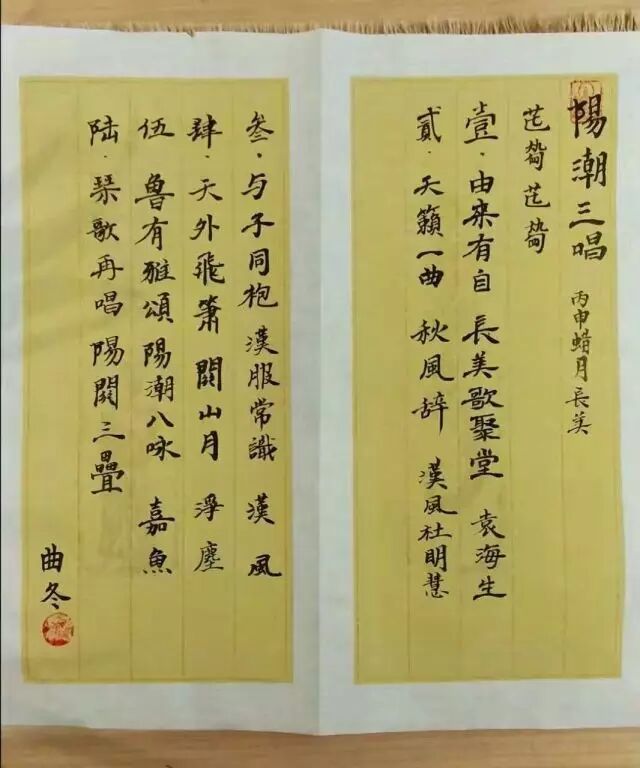 陽潮三唱 丙申蜡月長美
壹·由來有自 長美歌聚堂 袁海生
貳·天籟一曲 秋風辞 漢風杜明慧
叁·与子同袍 漢服常識 漢風
肆·天外飛簫 関山月 淨塵
伍 魯有雅頌 陽潮八咏 嘉魚
陸·琹歌再唱 陽関三疊
曲冬